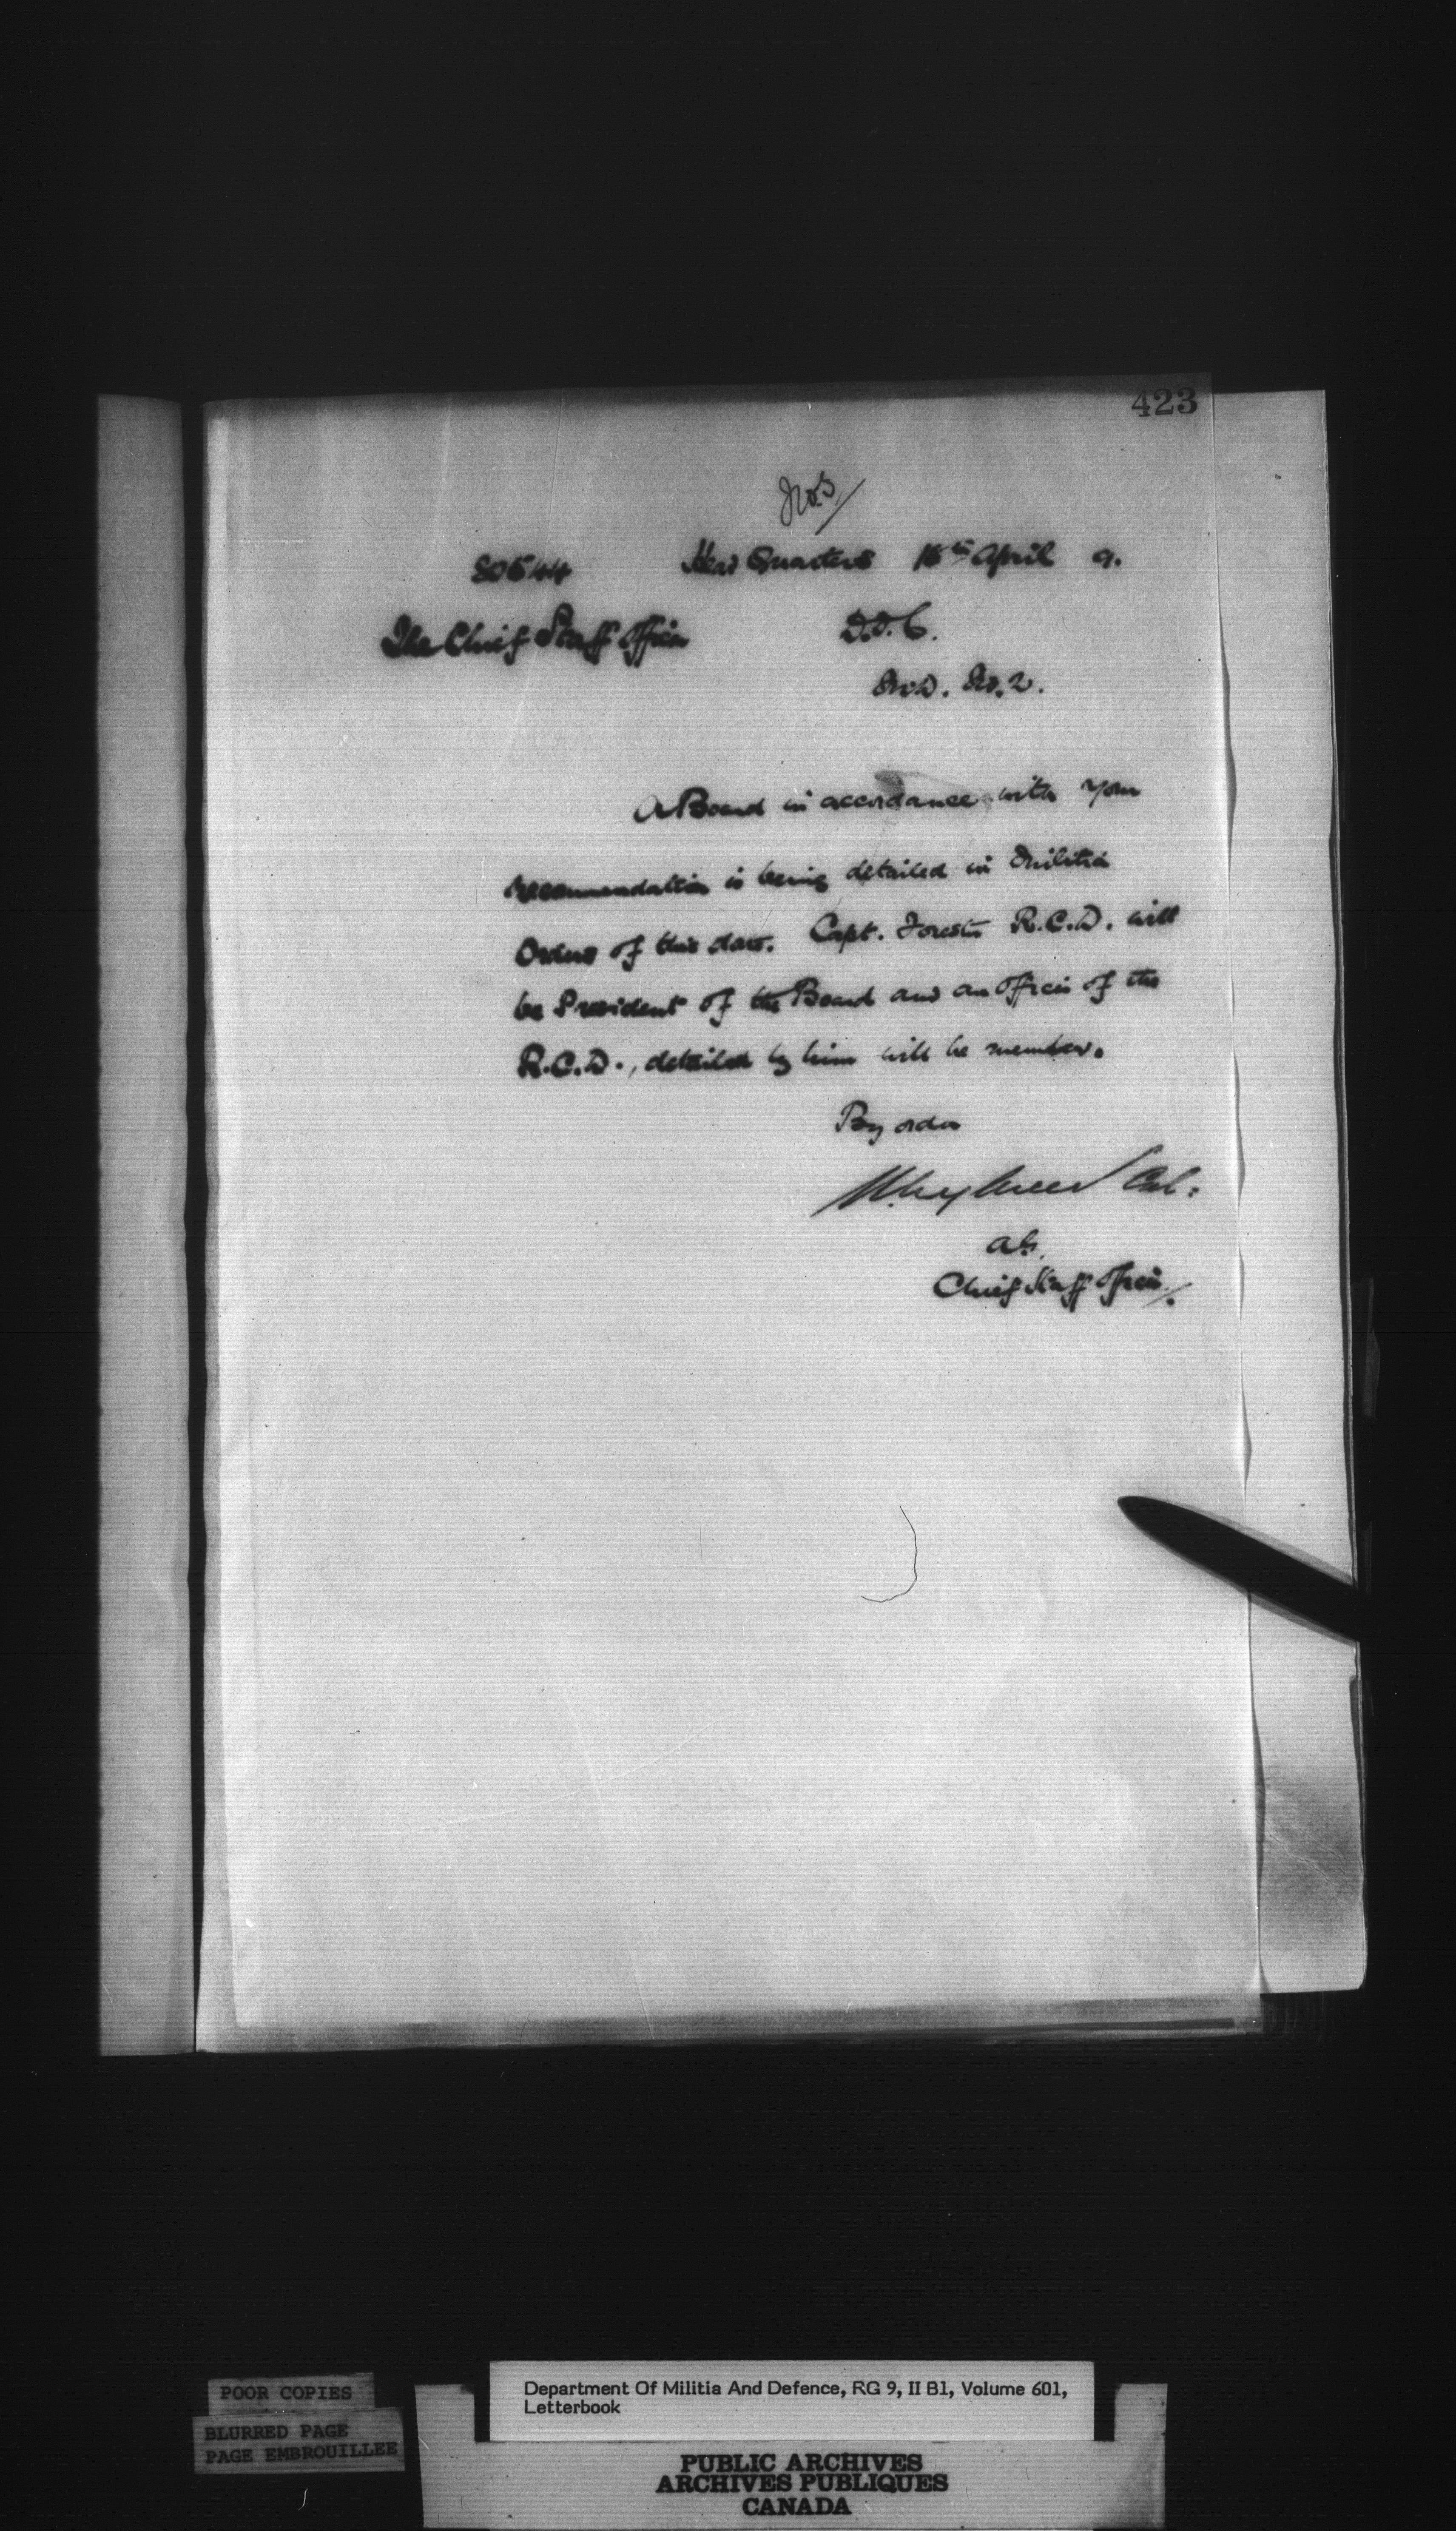 423
No 3/
80544 Head Quarters 15th April 9.
The Chief Staff Officer D.O.C.
M.D. No. 2.
A Board in accordance with your
recommendation is being detailed in Militia
Orders of this date. Capt. Forester R.C.D. will
be President of the Board and an officer of the
R.C.D., detailed by him will be member.
By order
Col:
Chief Staff Officer/.
POOR COPIES
BLURRED PAGE
PAGE EMBROUILLEE
Department Of Militia And Defence, RG 9, II B1, Volume 601,
Letterbook
PUBLIC ARCHIVES
ARCHIVES PUBLIQUES
CANADA